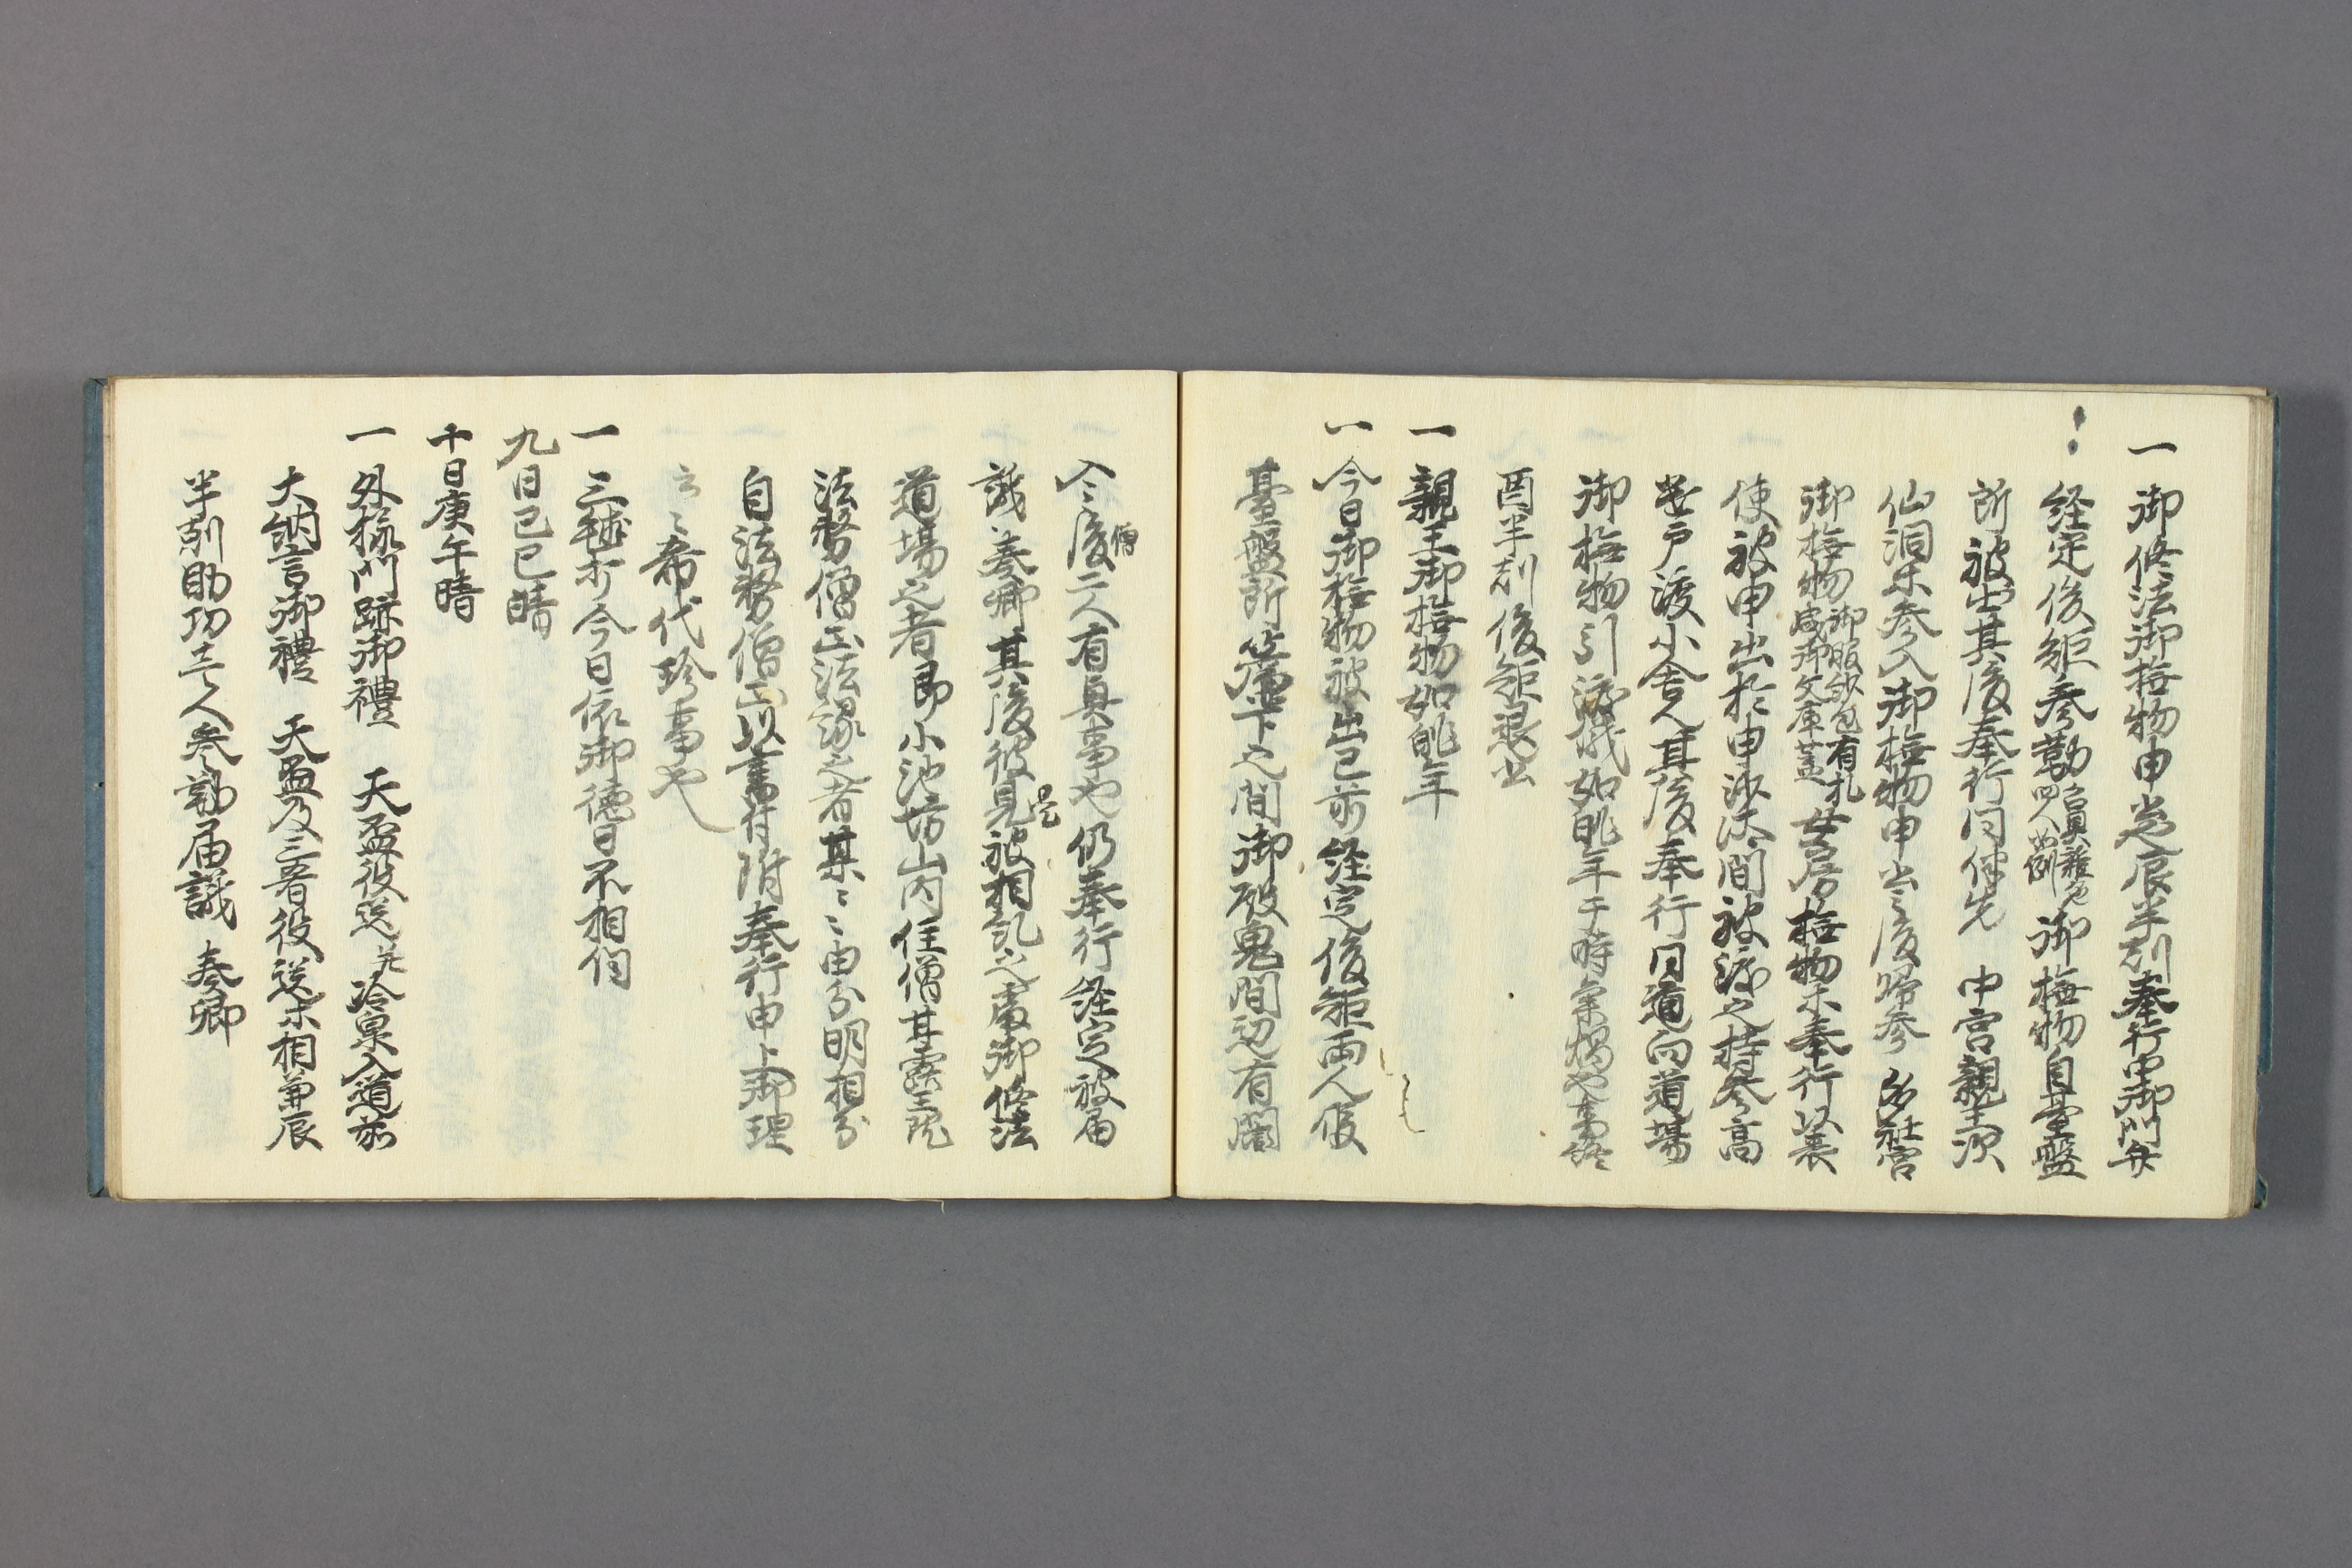 一御修法御撫物申出辰半刻奉行申御門弁
経定俊矩参勤四人如例御撫物自臺盤
所被出其後奉行同伴先 中宮親王次
仙洞等参入御撫物申出之後帰参
御撫物御服紗包有札盛御文庫蓋女房撫物等奉行以表
使被申出於申次所間被渡之持参高
戸渡小舎人其後奉行同道向道場
御撫物引渡儀如昨年于時事終
酉半刻俊矩退出
一親王御撫物如昨年
一今日御撫物被出已前経定俊矩両人候
臺盤所簾下之間御殿鬼間辺有闌
入之僧後二人有異事也仍奉行経定被届
議奏卿其後彼是見被相糺之處御修法
道場之者即小池坊山内住僧其雲院
法務僧正法縁之者某々由分明相分
自法務僧正以書付附奉行申上御理
云々希代珍事也
一三毬打今日依御徳日不相伺
九日己巳晴
十日庚午晴
一外様門跡御禮 天盃役送并冷泉入道前
大納言御禮 天盃乃三者役送等相兼辰
半刻助功士人参勤届議奏卿